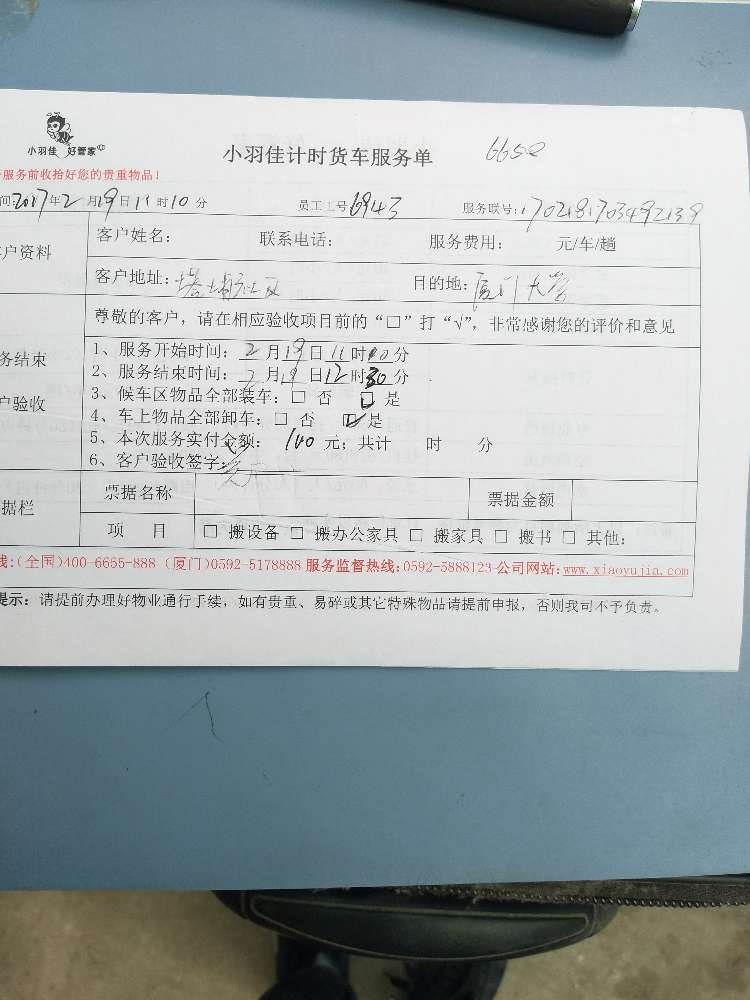 小羽佳 好管家
小羽佳计时货车服务单 6658
服务前收拾好您的贵重物品!
间:2017年2月19日11时10分 员工工号6943 服务联号:1702181703492139
户资料 客户姓名: 联系电话: 服务费用: 元/车/趟
客户地址:塔埔社区 目的地:厦门大学
尊敬的客户,请在相应验收项目前的“□”打“√”,非常感谢您的评价和意见
务结束
户验收
1、服务开始时间:2月19日11时00分
2、服务结束时间:2月19日12时30分
3、候车区物品全部装车:□ 否 ☑ 是
4、车上物品全部卸车:□ 否 ☑是
5、本次服务实付金额: 100元;共计 时 分
6、客户验收签字:
据栏 票据名称 票据金额
项 目 □ 搬设备 □ 搬办公家具 □ 搬家具 □ 搬书 □ 其他:
线:(全国)400-6655-888 (厦门)0592-5178888 服务监督热线:0592-5888123·公司网站:www.xiaoyujia.com
提示: 请提前办理好物业通行手续,如有贵重、易碎或其它特殊物品请提前申报,否则我司不予负责。